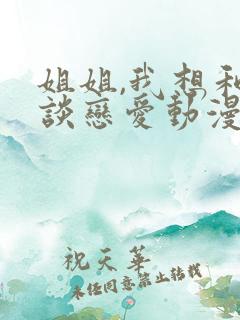 姐姐,我想和
談戀愛動漫
祝天華
未任同意禁止转载